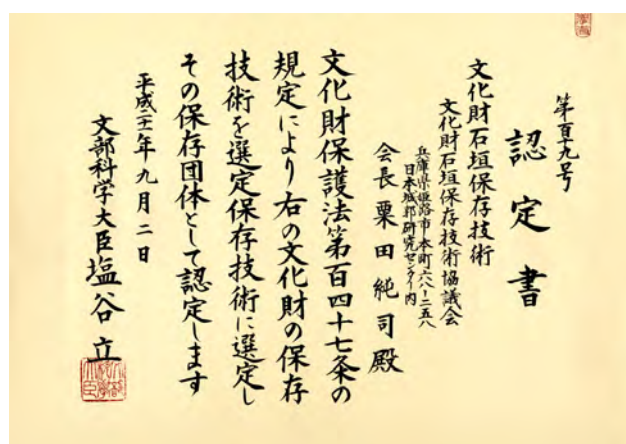 第百十九号
認定書
文化財石垣保存技術
文化財石垣保存技術協議会
兵庫県姫路市本町六八ー二五八
日本城郭研究センター内
会長 粟田純司殿
文化財保護法第百四十七条の
規定により右の文化財の保存
技術を選定保存技術に選定し
その保存団体として認定します
平成二十一年九月二日
文部科学大臣 塩谷立